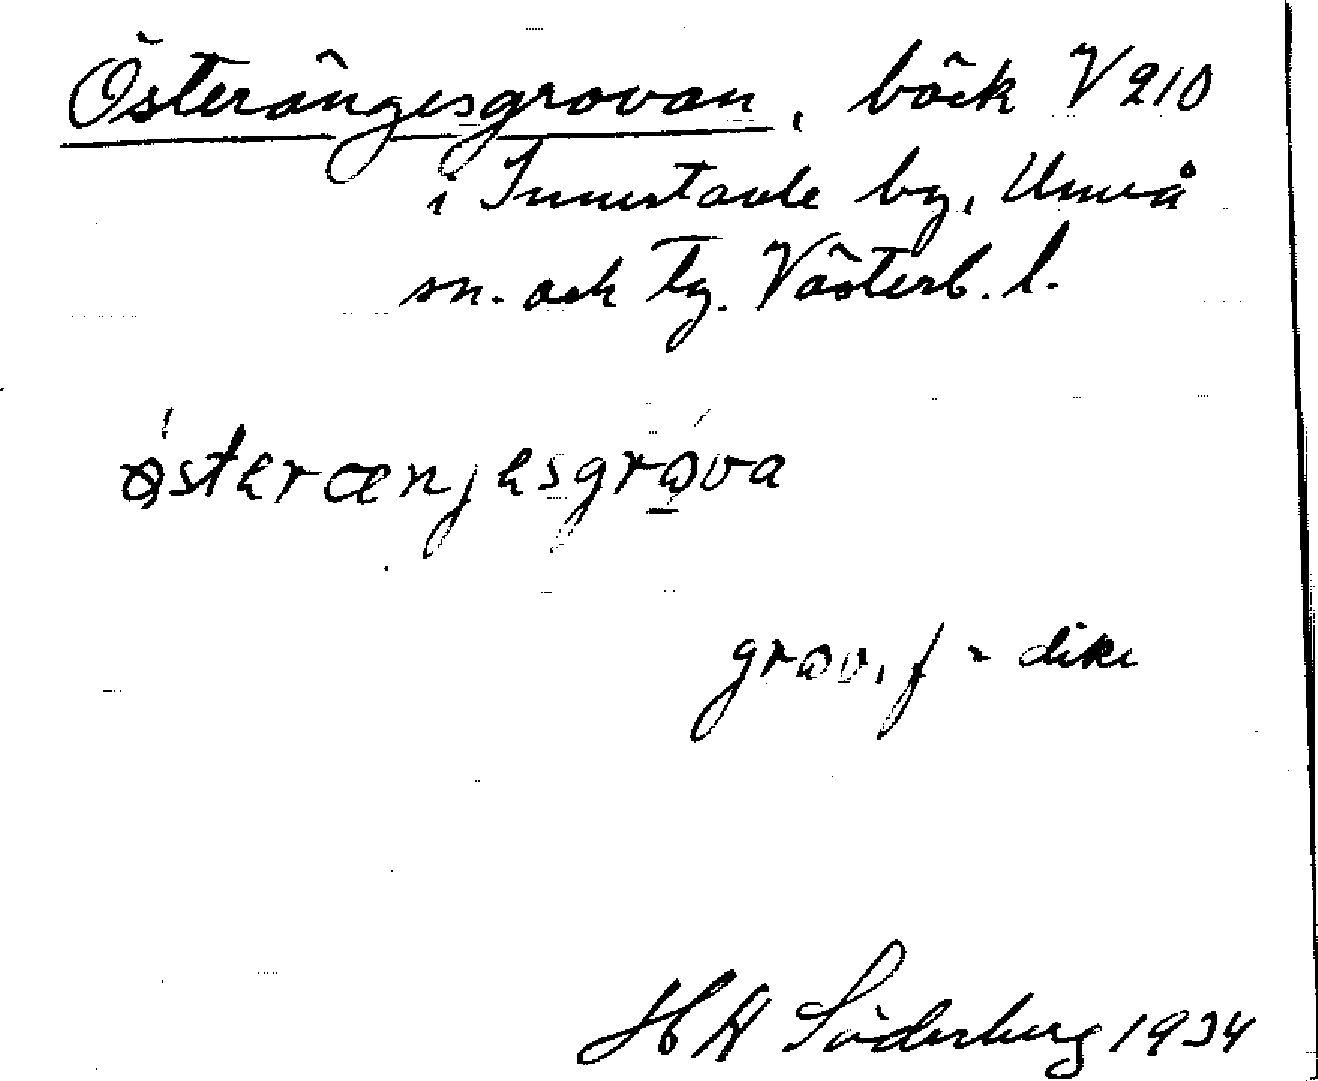 Österängesgrovan, bäck V 210
i Innertavle by, Umeå
sn. och tg. Västerb. l.
østerænjesgrøva
grøv, f = dike
H A Söderberg 1934